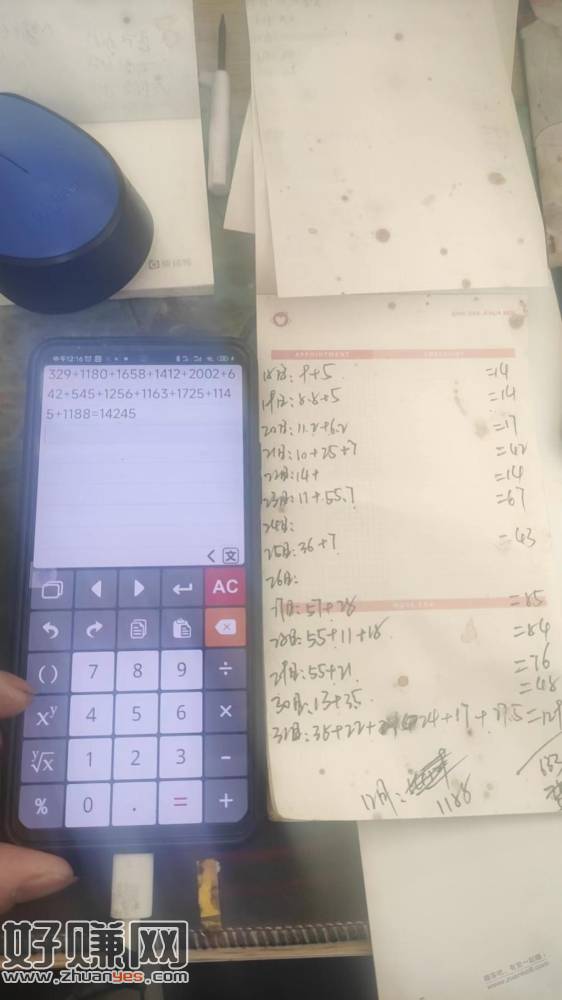 中午12:16
329+1180+1658+1412+2002+6
42+545+1256+1163+1725+114
5+1188=14245
AC
( ) 7 8 9 ÷
xʸ 4 5 6 ×
ʸ√x 1 2 3 −
% 0 . = +
APPOINTMENT
CHECKLIST
18日: 9+5 =14
19日: 8.8+5 =14
20日: 11.2+6.2 =17
21日: 10+25+7 =42
22日: 14+ =14
23日: 11+55.7 =67
24日:
25日: 36+7 =43
26日:
27日: 57+28 =85
28日: 55+11+18 =84
29日: 55+21 =76
30日: 13+35 =48
31日: 38+22+ 24+17+27.5=
12月: 1188
好赚网
www.zhuanyes.com